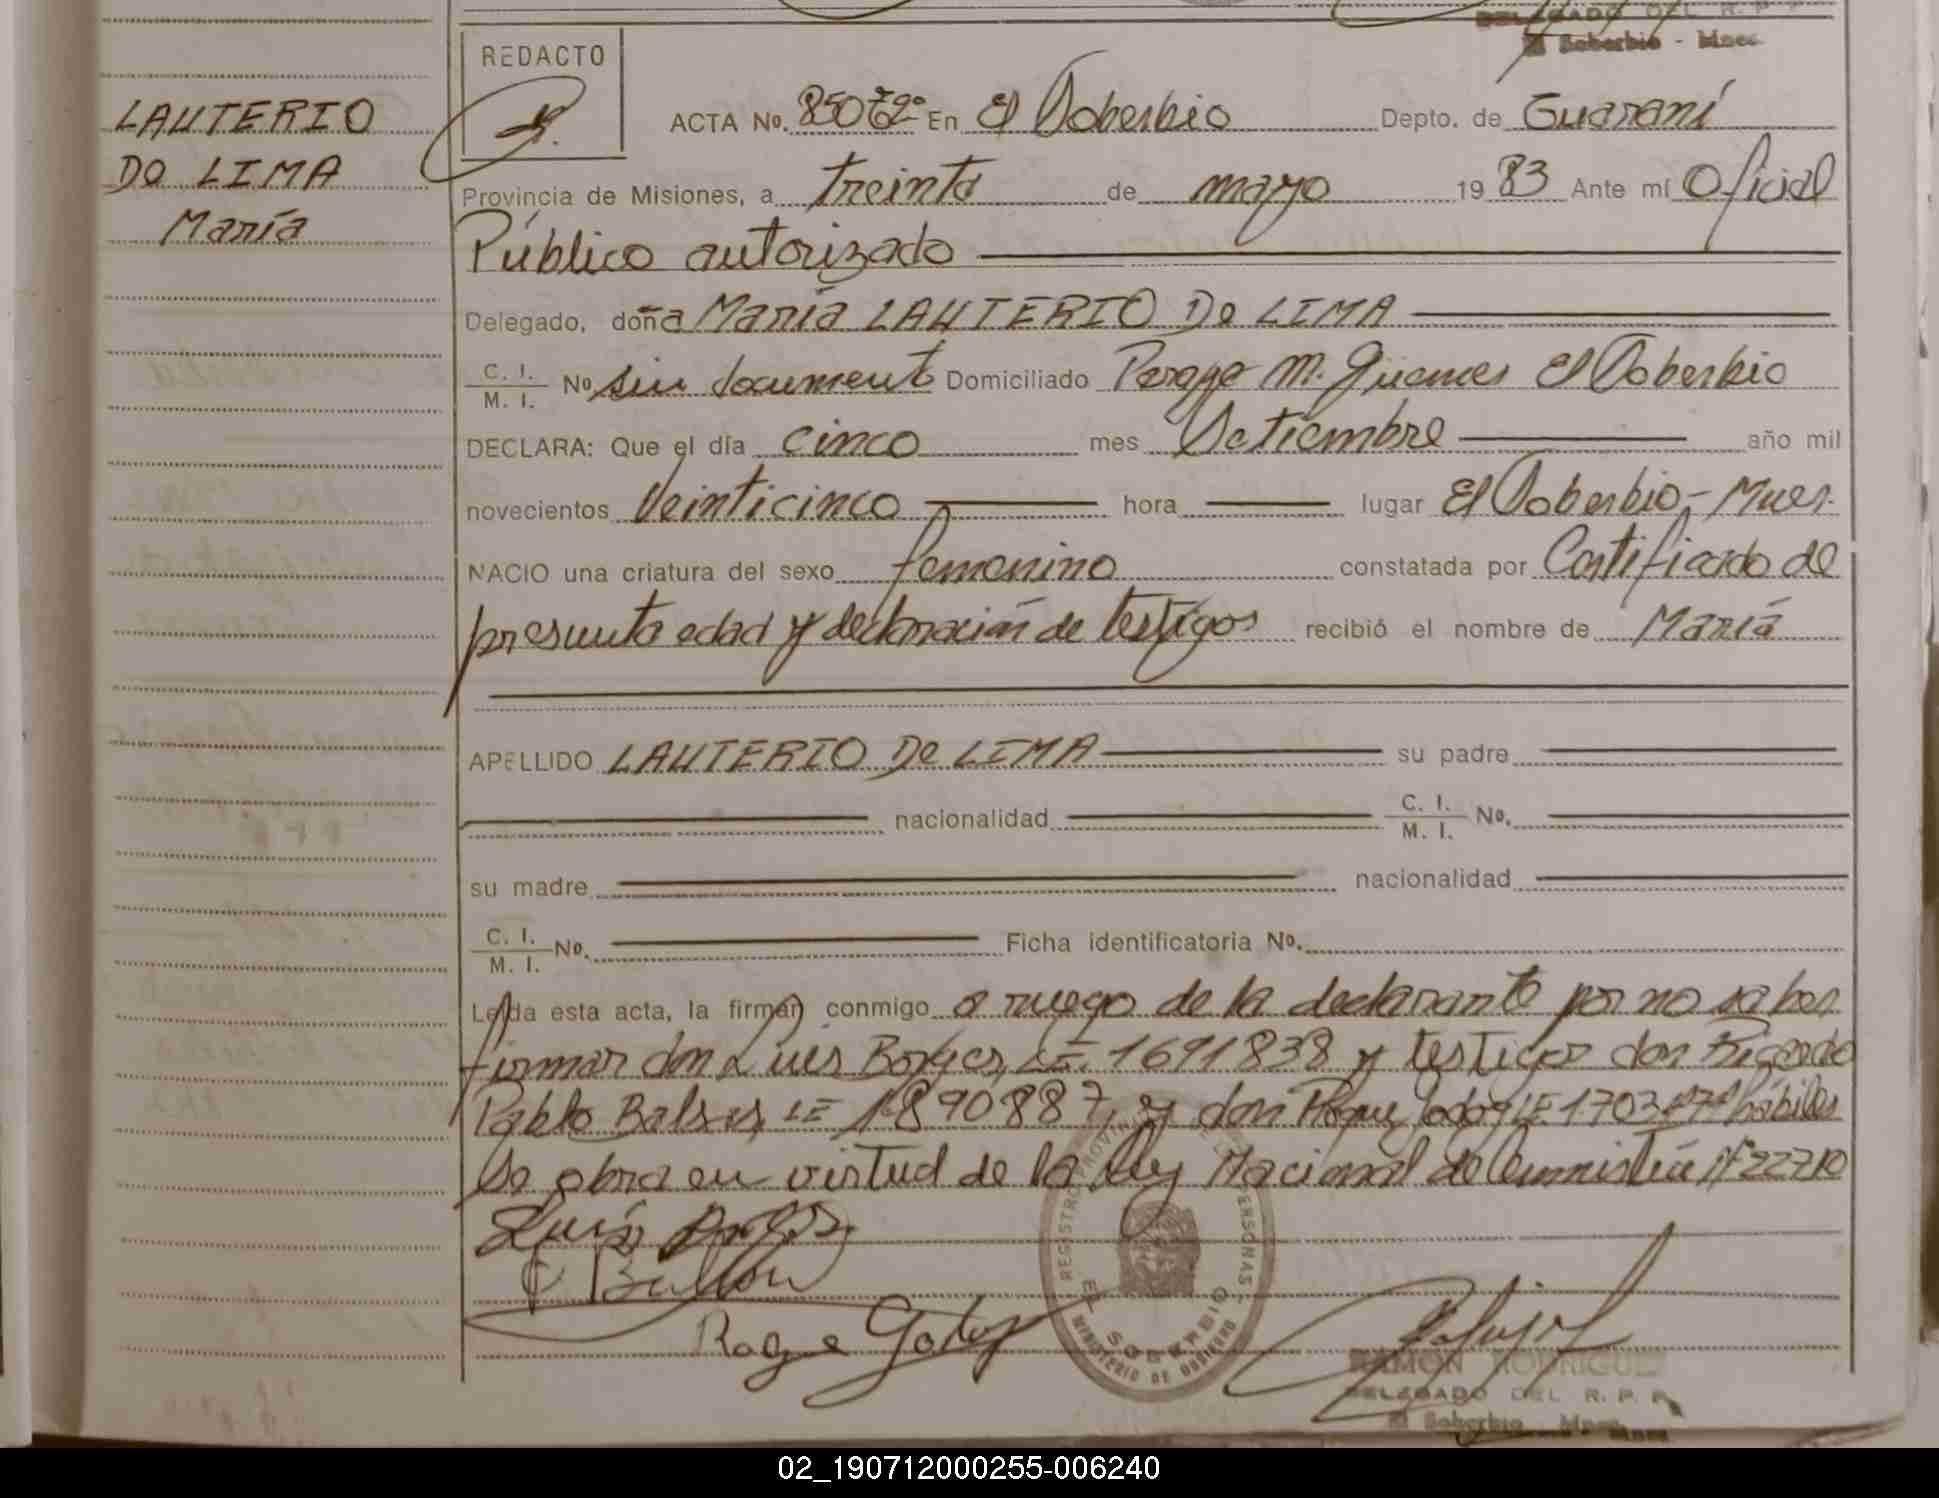 DELEGADO DEL R. P. P.
El Soberbio - Mnes.
LAUTERIO
DO LIMA
María
REDACTO
ACTA No. En El Soberbio Depto. de Guaraní
Provincia de Misiones, a treinta de mayo 19 83 Ante mí Oficial
Público autorizado
Delegado, doña María LAUTERIO DO LIMA
C. I.
M. I. No sin document Domiciliado Paraje M. Guemes El Soberbio
DECLARA: Que el día cinco mes Setiembre año mil
novecientos veinticinco hora lugar El Soberbio-
NACIO una criatura del sexo femenino constatada por Certificado de
presunta edad y declaración de testigos recibió el nombre de María
APELLIDO LAUTERIO DO LIMA su padre
nacionalidad C. I.
M. I. No.
su madre nacionalidad
C. I.
M. I. No. Ficha identificatoria No.
Leída esta acta, la firman conmigo a ruego de la declarante por no saber
firmar don Luis Borges, LE. 1691838 y testigos don Ricardo
Pablo LE 1890887, y don Roque Godoy LE. hábiles
Se obra en virtud de la ley Nacional de Amnistía Nº 22710
Luis Borges
Roque Godoy
REGISTRO PROVINCIAL DE LAS PERSONAS
EL SOBERBIO
MINISTERIO DE GOBIERNO
RAMON RODRIGUEZ
DELEGADO DEL R. P. P.
El Soberbio - Mnes.
02_190712000255-006240